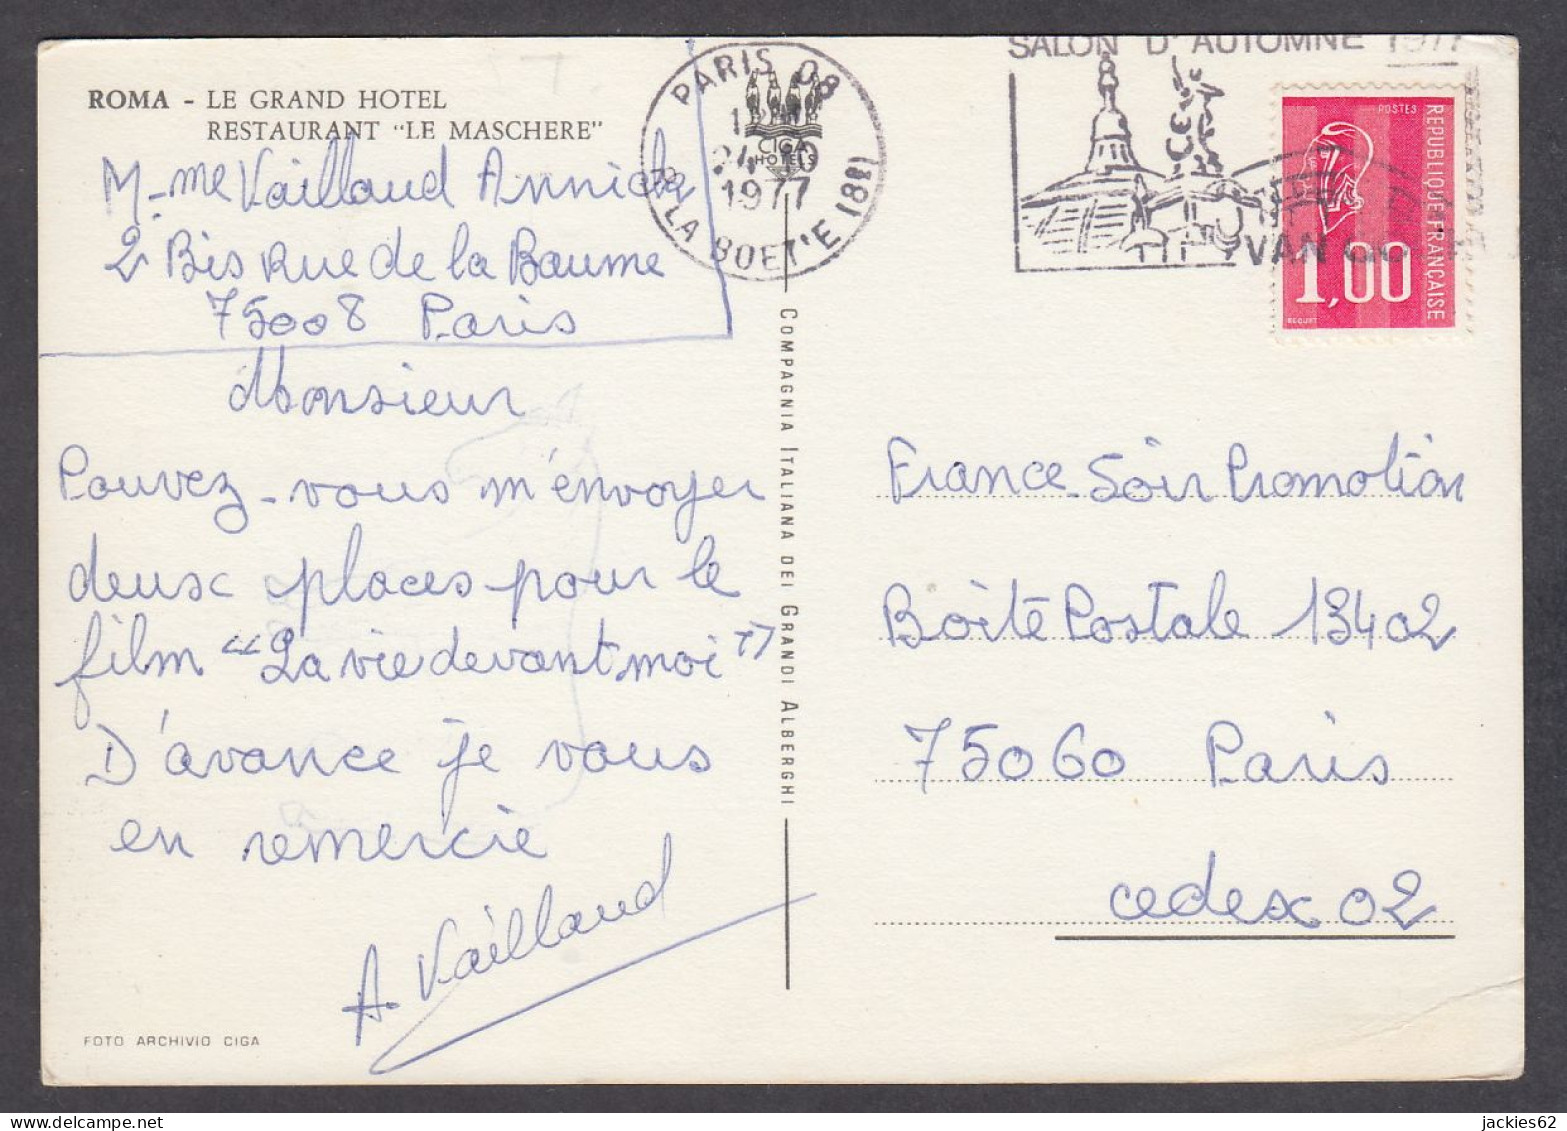 ROMA - LE GRAND HOTEL
RESTAURANT "LE MASCHERE"
M-me Vaillaud Annick
2 Bis Rue de la Baume
75008 Paris
Monsieur
Pouvez-vous m'envoyer
deux places pour le
film "La vie devant moi"
D'avance je vous
en remercie
A. Vaillaud
FOTO ARCHIVIO CIGA
COMPAGNIA ITALIANA DEI GRANDI ALBERGHI
CIGA
HOTELS
PARIS 08
24-10
1977
LA BOETIE (8E)
SALON D'AUTOMNE 1977
VAN GO
POSTES
REPUBLIQUE FRANÇAISE
1,00
BEQUET
France-Soir Promotion
Boîte Postale 13402
75060 Paris
cedex 02
jackies62